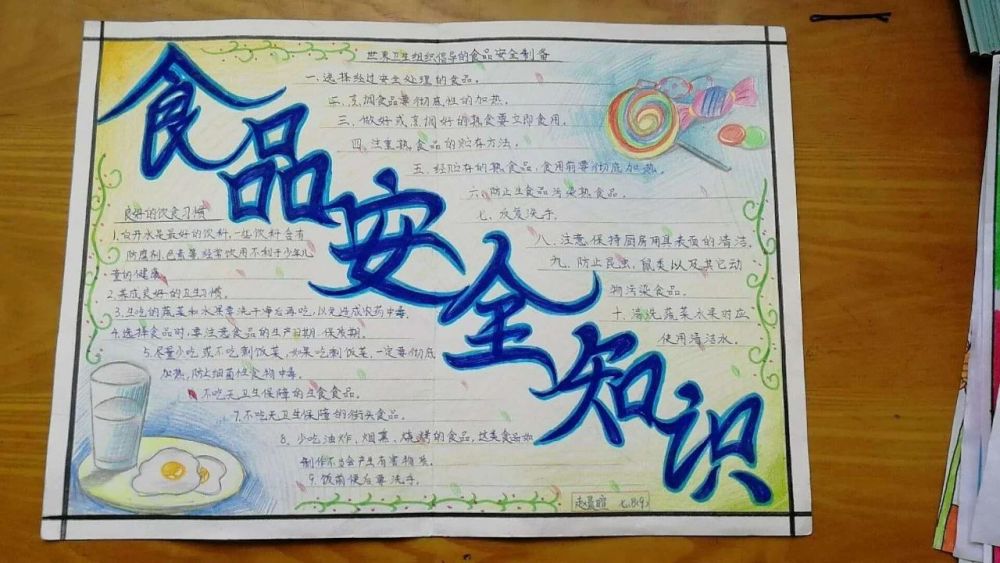 食品安全知识
世界卫生组织倡导的食品安全制备
一、选择经过安全处理的食品。
二、烹调食品要彻底性的加热。
三、做好或烹调好的熟食要立即食用。
四、注重熟食品的贮存方法。
五、经贮存的熟食品,食用前要彻底加热。
六、防止生食品污染熟食品。
七、反复洗手。
八、注意保持厨房用具表面的清洁。
九、防止昆虫、鼠类以及其它动
物污染食品。
十、清洗蔬菜水果时应
使用清洁水。
良好的饮食习惯
1.白开水是最好的饮料,一些饮料含有
防腐剂、色素等,经常饮用不利于少年儿
童的健康。
2.养成良好的卫生习惯。
3.生吃的蔬菜和水果要洗干净后再吃,以免造成农药中毒。
4.选择食品时,要注意食品的生产日期、保质期。
5.尽量少吃或不吃剩饭菜,如果吃剩饭菜,一定要彻底
加热,防止细菌性食物中毒。
不吃无卫生保障的生食食品。
7.不吃无卫生保障的街头食品。
8.少吃油炸、烟熏、烧烤的食品,这类食品如
制作不当会产生有害物质。
9.饭前便后要洗手。